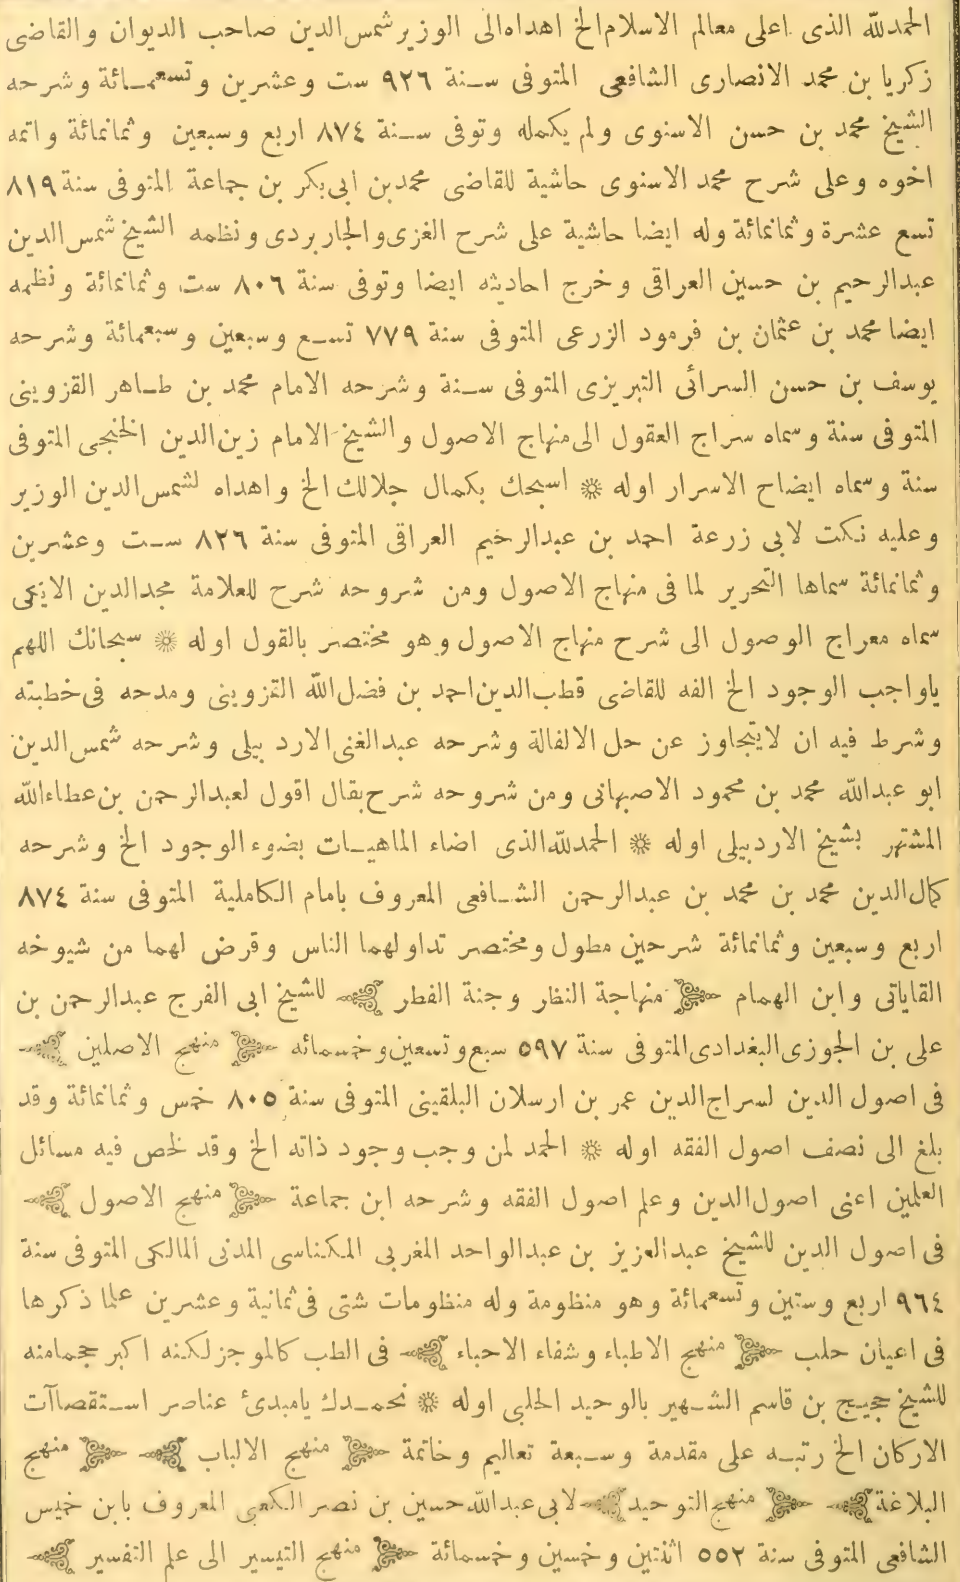 الحمدلله الذى اعلى معالم الاسلام الخ اهداه الى الوزير شمس الدين صاحب الديوان والقاضى
زكريا بن محمد الانصارى الشافعى المتوفى سنة ٩٢٦ ست وعشرين وتسعمائة وشرحه
الشيخ محمد بن حسن الاسنوى ولم يكمله وتوفى سنة ٨٧٤ اربع وسبعين وثمانمائة واتمه
اخوه وعلى شرح محمد الاسنوى حاشية للقاضى محمد بن ابى بكر بن جماعة المتوفى سنة ٨١٩
تسع عشرة وثمانمائة وله ايضا حاشية على شرح الغزى والجاربردى ونظمه الشيخ شمس الدين
عبدالرحيم بن حسين العراقى وخرج احاديثه ايضا وتوفى سنة ٨٠٦ ست وثمانمائة ونظمه
ايضا محمد بن عثمان بن فرمود الزرعى المتوفى سنة ٧٧٩ تسع وسبعين وسبعمائة وشرحه
يوسف بن حسن السرائى التبريزى المتوفى سنة وشرحه الامام محمد بن طاهر القزوينى
المتوفى سنة وسماه سراج العقول الى منهاج الاصول والشيخ الامام زين الدين الخنجى المتوفى
سنة وسماه ايضاح الاسرار اوله ❋ اسبحك بكمال جلالك الخ واهداه لشمس الدين الوزير
وعليه نكت لابى زرعة احمد بن عبدالرحيم العراقى المتوفى سنة ٨٢٦ ست وعشرين
وثمانمائة سماها التحرير لما فى منهاج الاصول ومن شروحه شرح للعلامة مجدالدين الايكى
سماه معراج الوصول الى شرح منهاج الاصول وهو مختصر بالقول اوله ❋ سبحانك اللهم
ياواجب الوجود الخ الفه للقاضى قطب الدين احمد بن فضل الله القزوينى ومدحه فى خطبته
وشرط فيه ان لايتجاوز عن حل الالفالة وشرحه عبدالغنى الاردبيلى وشرحه شمس الدين
ابو عبدالله محمد بن محمود الاصبهانى ومن شروحه شرح بقال اقول لعبدالرحمن بن عطاءالله
المشتهر بشيخ الاردبيلى اوله ❋ الحمدلله الذى اضاء الماهيات بضوء الوجود الخ وشرحه
كمال الدين محمد بن محمد بن عبدالرحمن الشافعى المعروف بامام الكاملية المتوفى سنة ٨٧٤
اربع وسبعين وثمانمائة شرحين مطول ومختصر تداولهما الناس وقرض لهما من شيوخه
القاياتى وابن الهمام منهاجة النظار وجنة الفطر للشيخ ابى الفرج عبدالرحمن بن
على بن الجوزى البغدادى المتوفى سنة ٥٩٧ سبع وتسعين وخمسمائه منهج الاصلين
فى اصول الدين لسراج الدين عمر بن ارسلان البلقينى المتوفى سنة ٨٠٥ خمس وثمانمائة وقد
بلغ الى نصف اصول الفقه اوله ❋ الحمد لمن وجب وجود ذاته الخ وقد لخص فيه مسائل
العلمين اعنى اصول الدين وعلم اصول الفقه وشرحه ابن جماعة منهج الاصول
فى اصول الدين للشيخ عبدالعزيز بن عبدالواحد المغربى المكناسى المدنى المالكى المتوفى سنة
٩٦٤ اربع وستين وتسعمائة وهو منظومة وله منظومات شتى فى ثمانية وعشرين علما ذكرها
فى اعيان حلب منهج الاطباء وشفاء الاحباء فى الطب كالموجز لكنه اكبر حجما منه
للشيخ حجيج بن قاسم الشهير بالوحيد الحلبى اوله ❋ نحمدك يامبدئ عناصر استقصاآت
الاركان الخ رتبه على مقدمة وسبعة تعاليم وخاتمة منهج الالباب منهج
البلاغة منهج التوحيد لابى عبدالله حسين بن نصر الكعبى المعروف بابن خميس
الشافعى المتوفى سنة ٥٥٢ اثنتين وخمسين وخمسمائة منهج التيسير الى علم التفسير